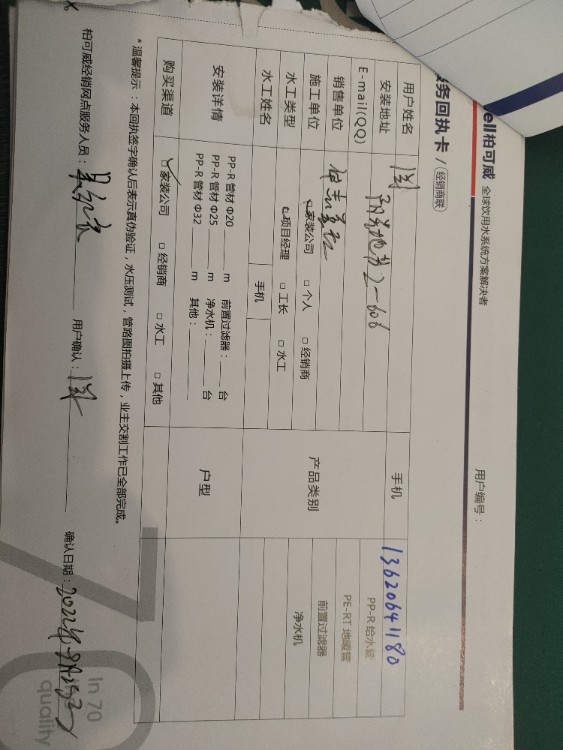 ell柏可威 全球饮用水系统方案解决者
服务回执卡 / 经销商联
用户编号：
用户姓名
手机 13620641180
安装地址 2-606
E-mail(QQ)
产品类别
PP-R 给水管
PE-RT 地暖管
前置过滤器
净水机
销售单位
施工单位 □家装公司 □个人 □经销商
水工类型 □项目经理 □工长 □水工
水工姓名
手机
安装详情
PP-R 管材 Φ20 m 前置过滤器： 台
PP-R 管材 Φ25 m 净水机： 台
PP-R 管材 Φ32 m 其他：
户型
购买渠道 □家装公司 □经销商 □水工 □其他
*温馨提示：本回执签字确认后表示真伪验证，水压测试，管路图拍摄上传，业主交割工作已全部完成。
柏可威经销网点服务人员：
用户确认：
确认日期：2022年
In 70
quality